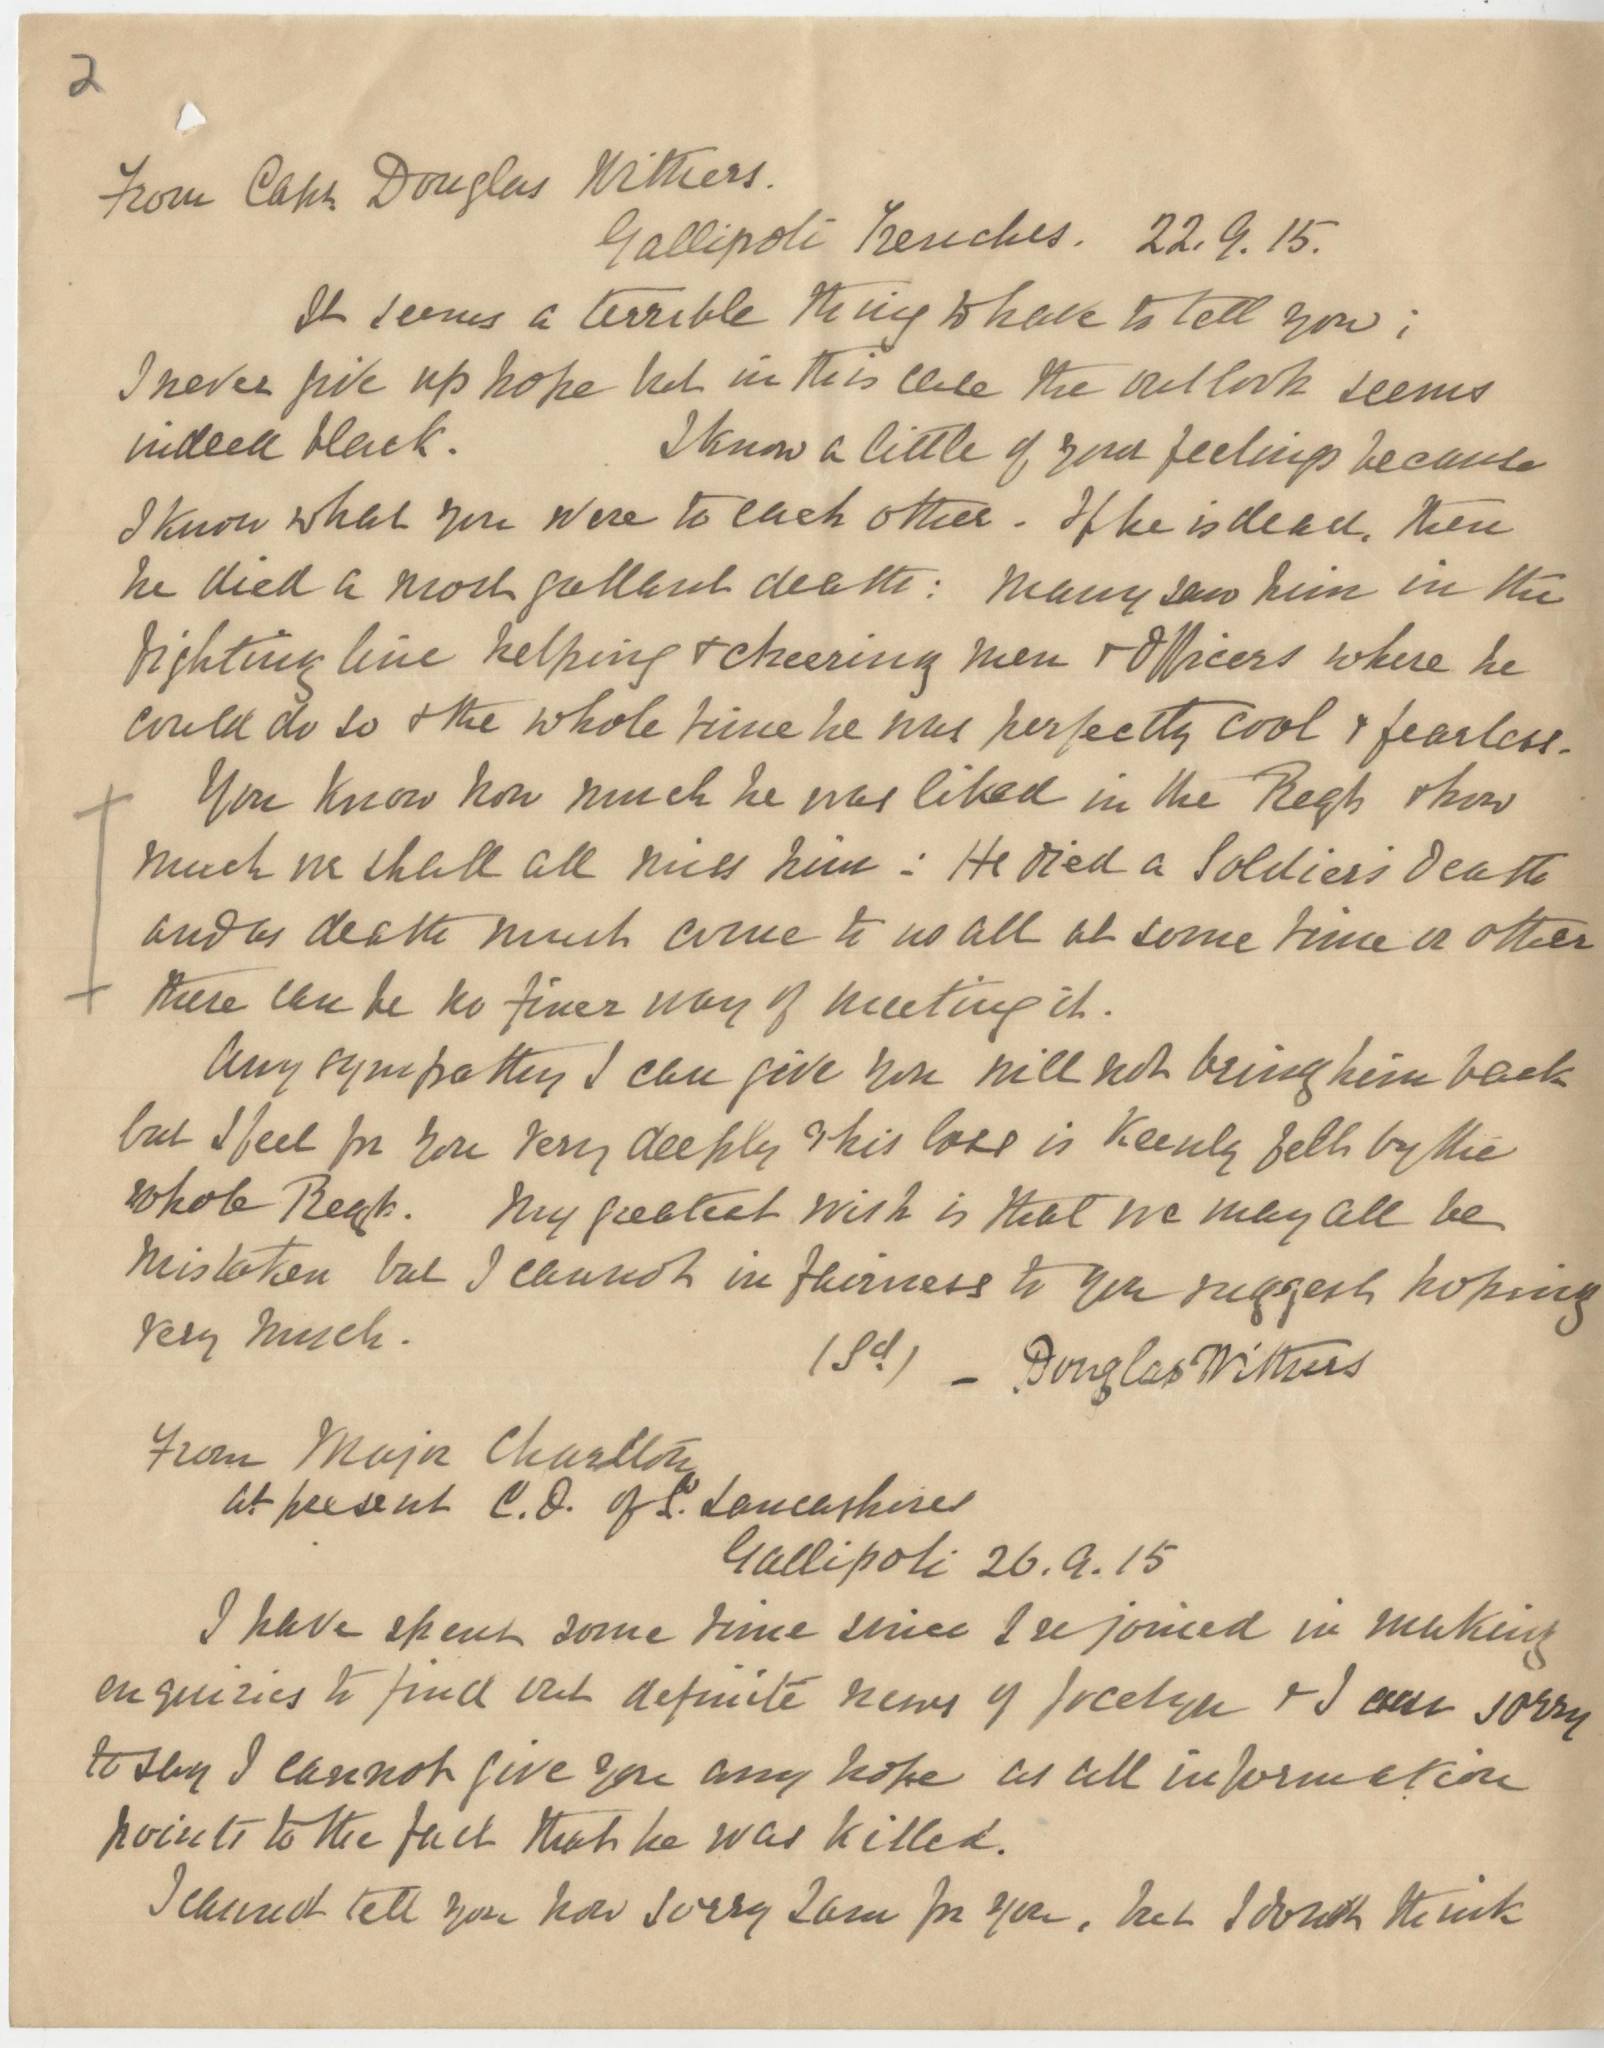 2
From Capt. Douglas Withers.
Gallipoli Trenches. 22.9.15.
It seems a terrible thing to have to tell you;
I never give up hope but in this case the outlook seems
indeed black. I know a little of your feelings because
I know what you were to each other. If he is dead, then
he died a most gallant death: many saw him in the
fighting line helping & cheering men & Officers where he
could do so & the whole time he was perfectly cool & fearless.
You know how much he was liked in the Regt & how
much we shall all miss him: He died a Soldier's death
and as death must come to us all at some time or other
there can be no finer way of meeting it.
Any sympathy I can give you will not bring him back
but I feel for you very deeply & his loss is keenly felt by the
whole Regt. My greatest wish is that we may all be
mistaken but I cannot in fairness to you suggest hoping
very much.
(Sd) - Douglas Withers
From Major Charlton
at present C.O. of S. Lancashires
Gallipoli 26.9.15
I have spent some time since I rejoined in making
enquiries to find out definite news of Jocelyn & I am sorry
to say I cannot give you any hope as all information
points to the fact that he was killed.
I cannot tell you how sorry I am for you, but I don't think